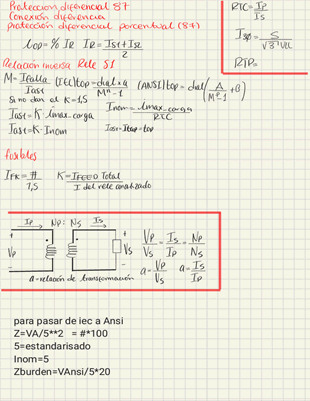 Protección diferencial 87
Conexión diferencia
protección diferencial porcentual (87)
iop=% IR IR = Is1+Is2 / 2
Relacion inversa Rele 51
M= Ifalla / Iast (IEC)top= dial x a / M^n -1 (ANSI)top = dial (A / M^p-1 + B)
Si no dan al K=1,5
Iast=K·imax_carga Inom= imax_carga / RTC
Iast=K·Inom Iast=Itap=top
fusibles
IFK= # / 1,5 K= IFEED Total / I del rele analizado
RTC= Ip / Is
I3φ= S / √3*VLL
RTP=
Ip Np: Ns Is
+ +
Vp Vs
- -
a=relación de transformación
Vp / Vs = Is / Ip = Np / Ns
a= Vp / Vs a= Is / Ip
para pasar de iec a Ansi
Z=VA/5**2 = #*100
5=estandarisado
Inom=5
Zburden=VAnsi/5*20